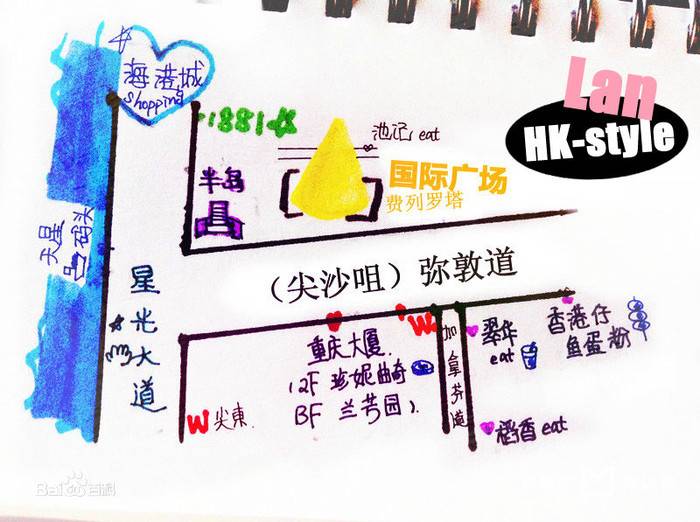 海港城
shopping
1881
Lan
HK-style
池记 eat
半岛
国际广场
费列罗塔
天星
码头
星光大道
（尖沙咀）弥敦道
W
加拿芬道
重庆大厦
(2F 珍妮曲奇
BF 兰芳园).
W 尖東
翠华
eat
香港仔
鱼蛋粉
稻香 eat
Bai百科